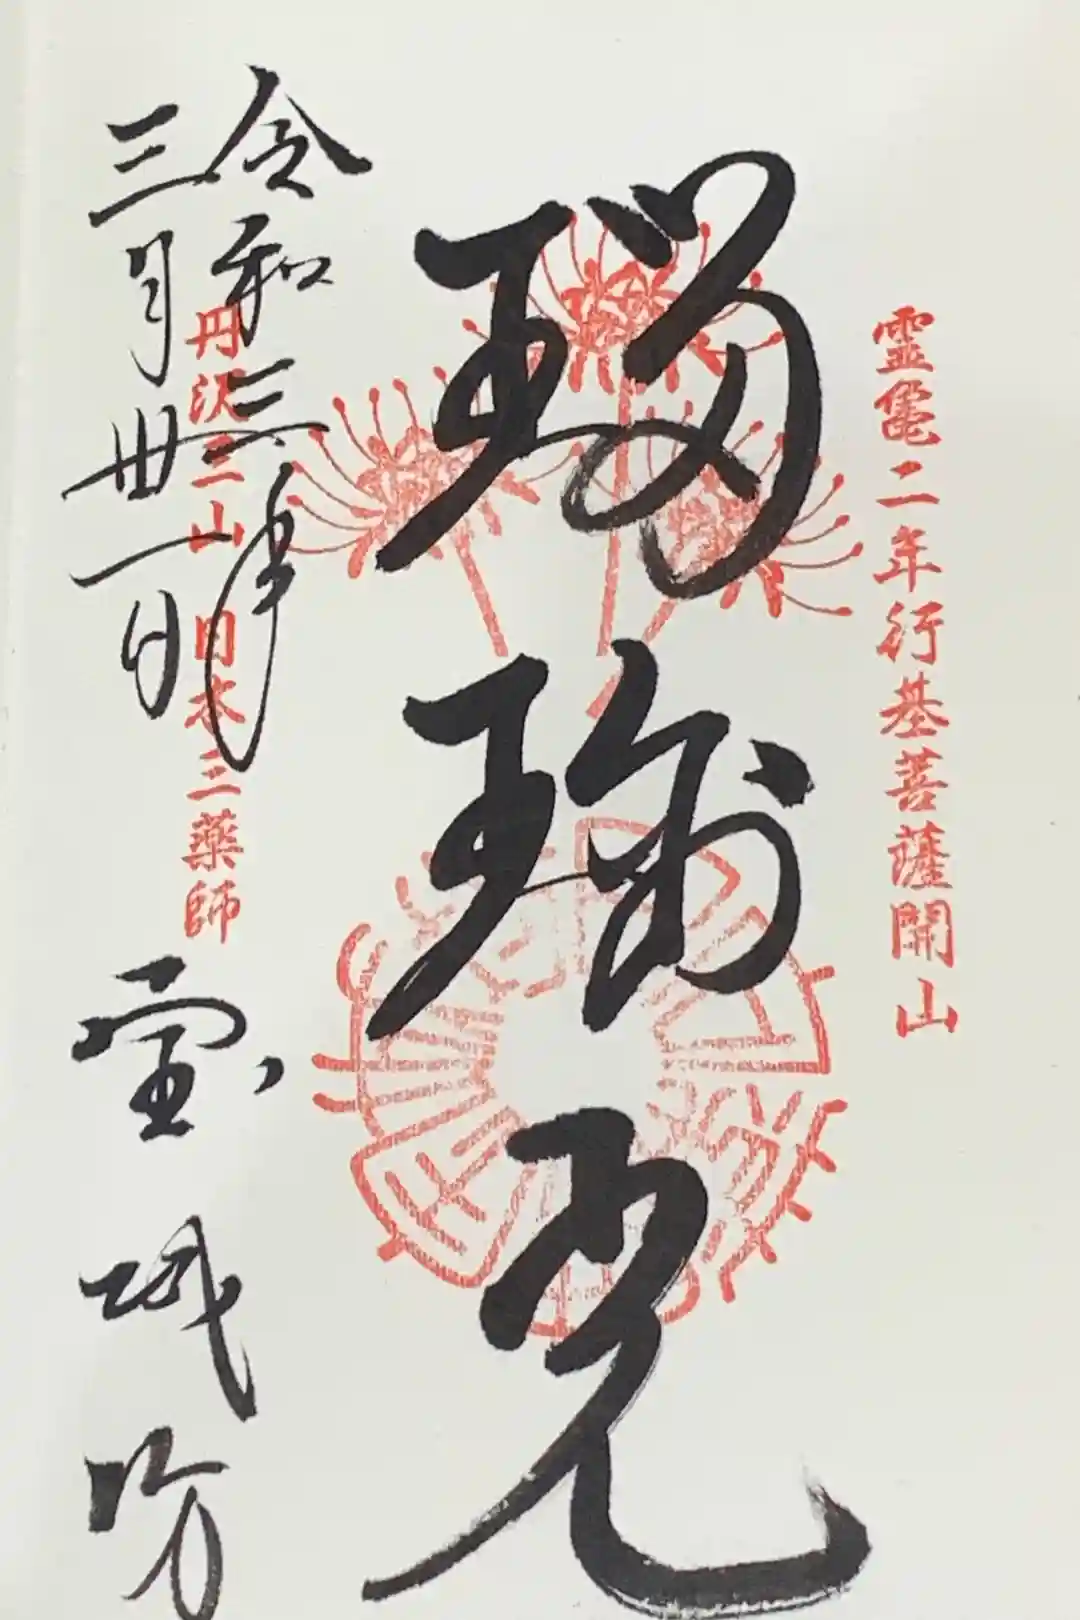 霊亀二年行基菩薩開山
瑠璃光
令和三年
丹沢山 日本三薬師
三月卅一日
宝城坊